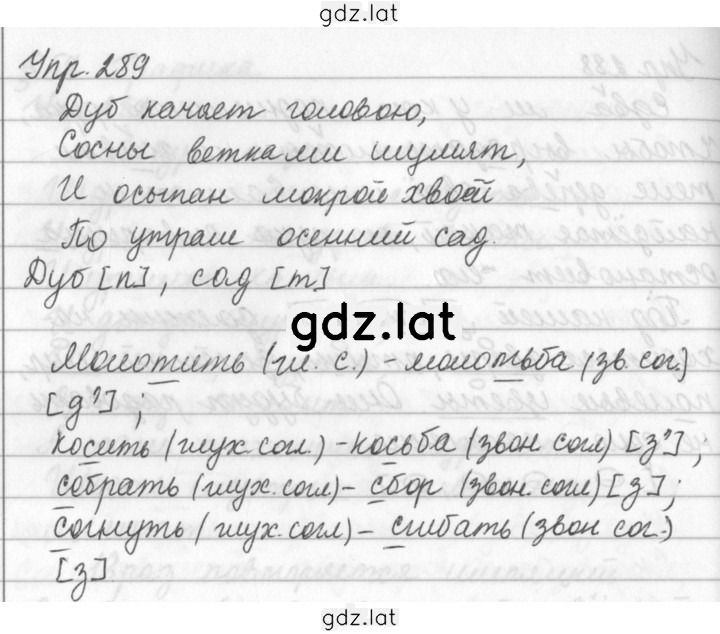 gdz.lat
Упр. 289
Дуб качает головою,
Сосны ветками шумят,
И осыпан мокрой хвоей
По утрам осенний сад.
Дуб [п], сад [т]
gdz.lat
Молотить (гл. с.) - молотьба (зв. сог.)
[д'];
косить (глух. согл.) - косьба (звон. согл) [з'];
собрать (глух. согл) - сбор (звон. согл) [з];
согнуть (глух. согл) - сгибать (звон сог.)
[з]
gdz.lat